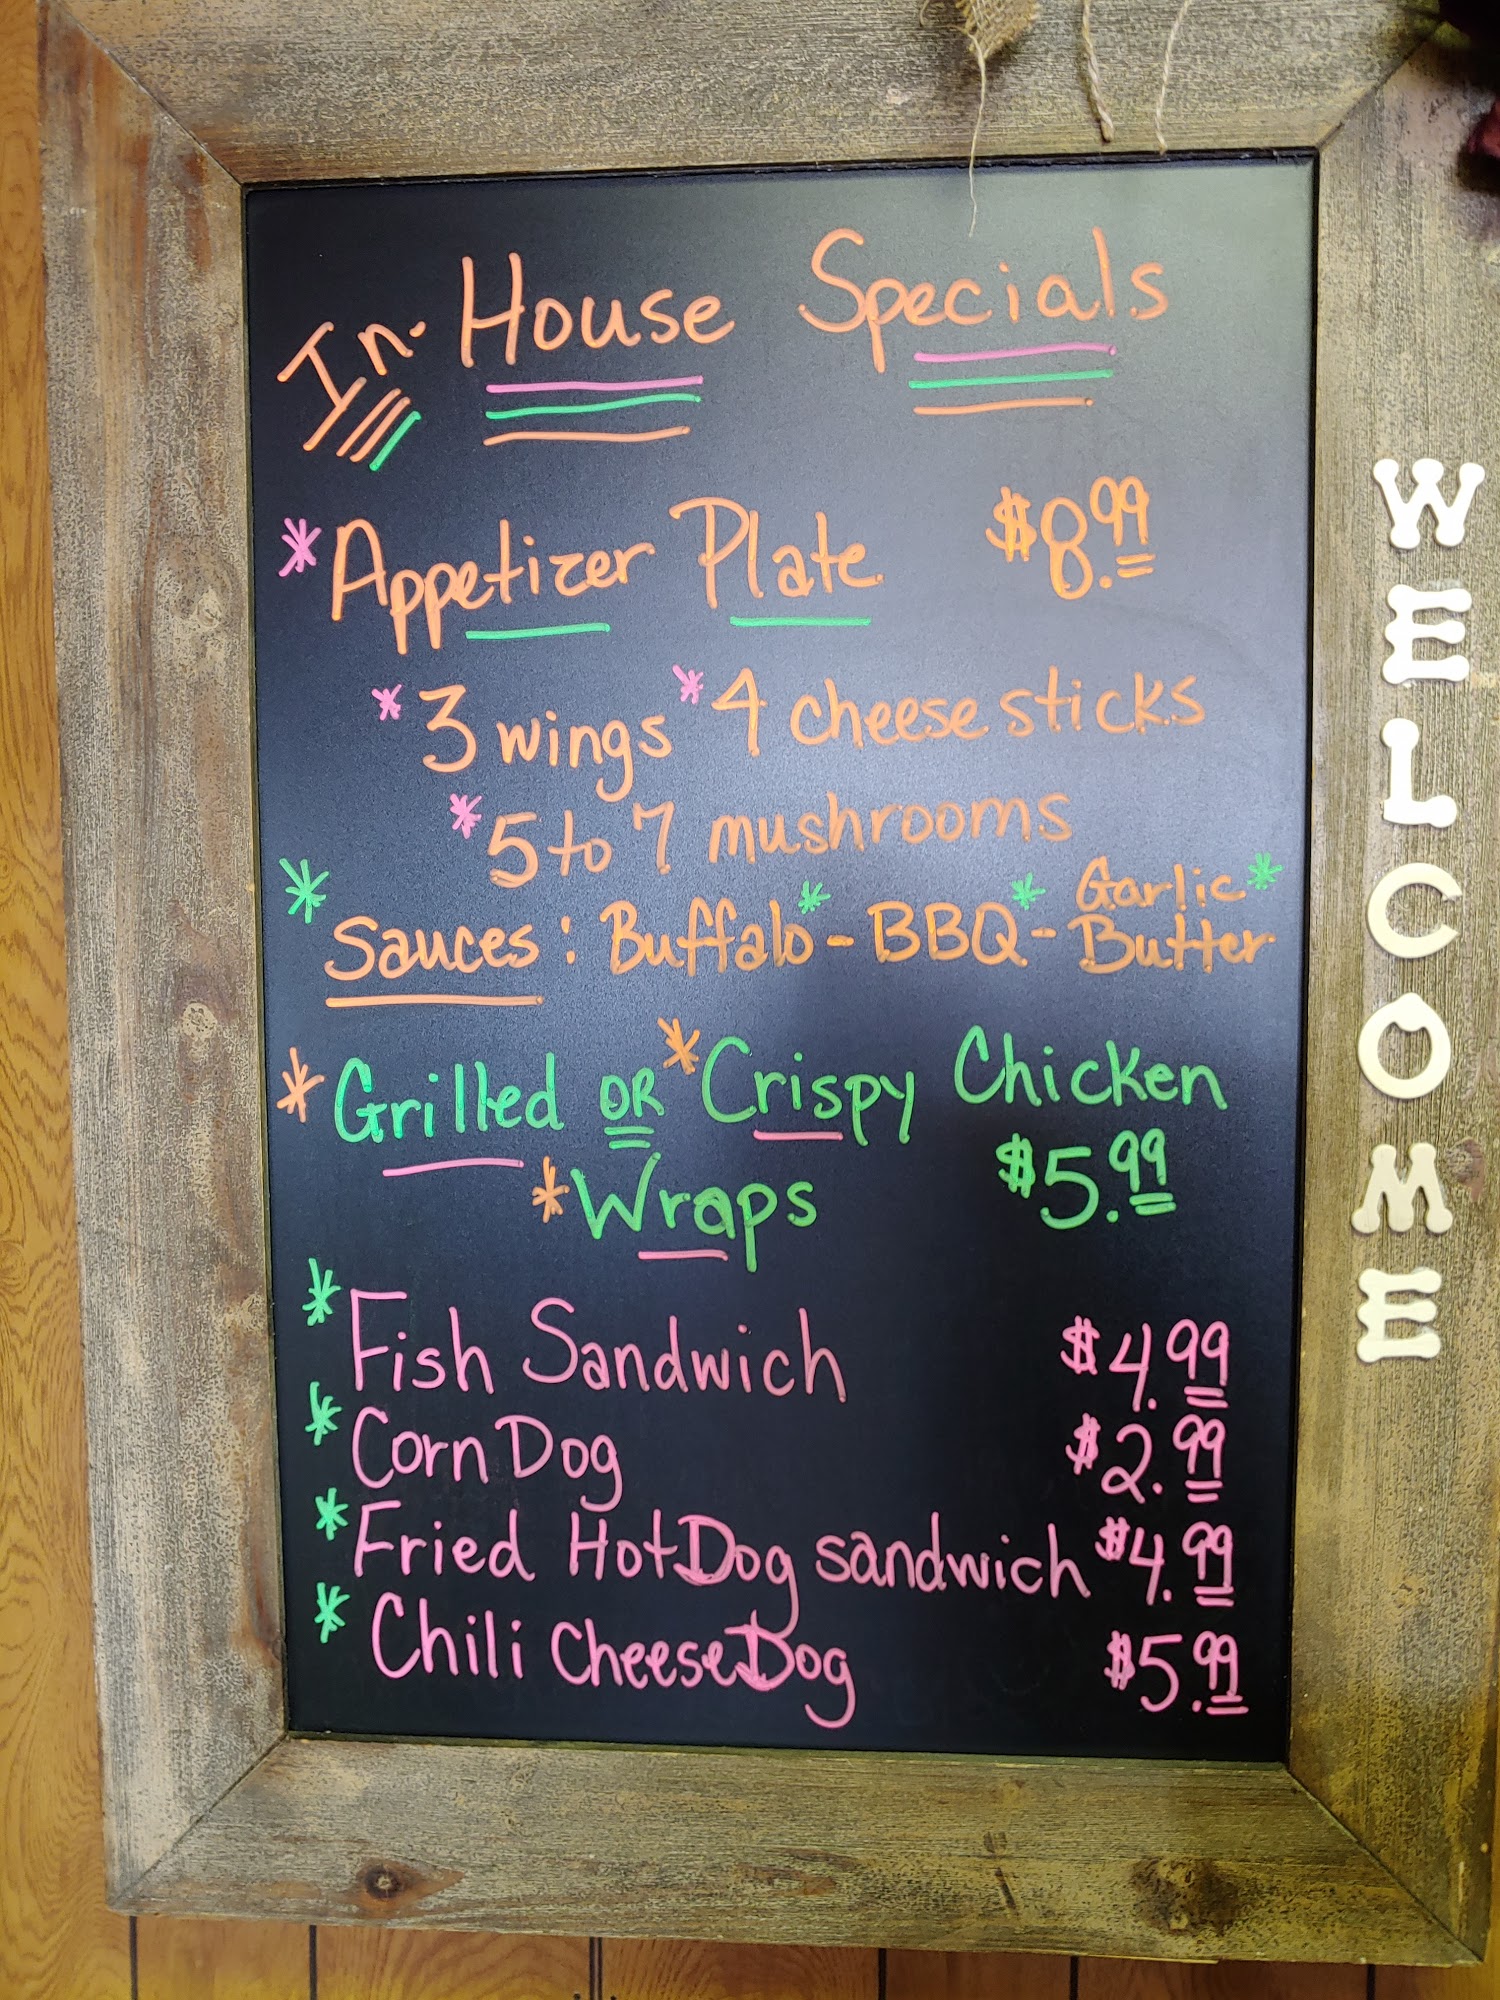 In-House Specials
*Appetizer Plate $8.99
*3 wings *4 cheese sticks
*5 to 7 mushrooms
*Sauces: Buffalo* - BBQ* - Garlic Butter*
*Grilled OR *Crispy Chicken
*Wraps $5.99
*Fish Sandwich $4.99
*Corn Dog $2.99
*Fried Hot Dog sandwich $4.99
*Chili Cheese Dog $5.99
WELCOME